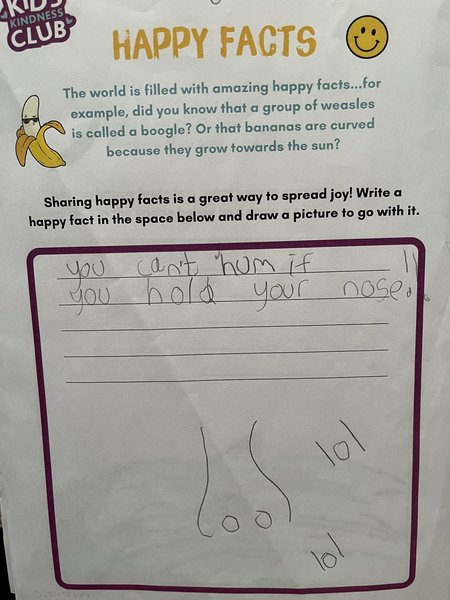 KIDS
KINDNESS
CLUB
HAPPY FACTS
The world is filled with amazing happy facts...for
example, did you know that a group of weasles
is called a boogle? Or that bananas are curved
because they grow towards the sun?
Sharing happy facts is a great way to spread joy! Write a
happy fact in the space below and draw a picture to go with it.
you can't hum if !!
you hold your nose.
lol
lol